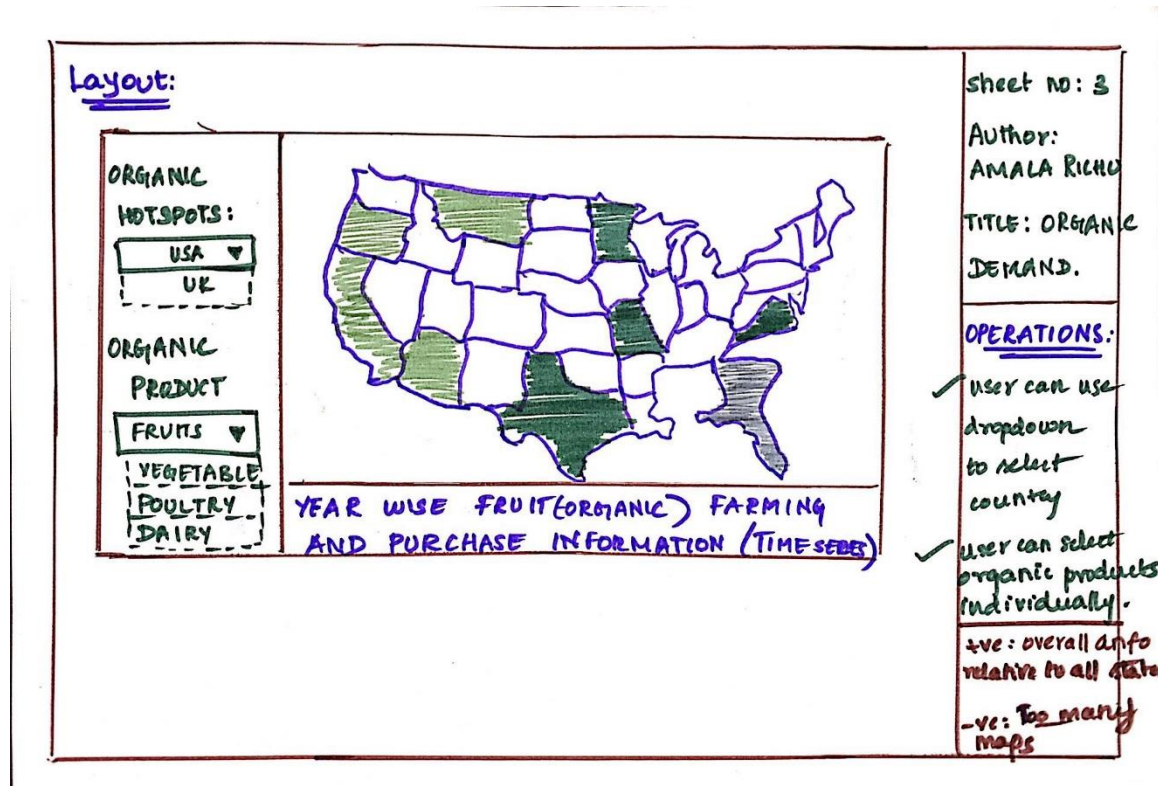 Layout:
ORGANIC
HOTSPOTS:
USA ▼
UK
ORGANIC
PRODUCT
FRUITS ▼
VEGETABLE
POULTRY
DAIRY
YEAR WISE FRUIT(ORGANIC) FARMING
AND PURCHASE INFORMATION (TIME SERIES)
Sheet no: 3
Author:
AMALA RICHU
TITLE: ORGANIC
DEMAND.
OPERATIONS:
✓ user can use
dropdown
to select
country
✓ user can select
organic products
individually.
+ve: overall info
relative to all state
-ve: Too many
maps